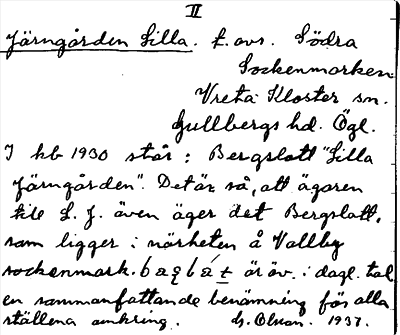 II
Järngården Lilla. t. avs. Södra
Sockenmarken
Vreta Kloster sn.
Gullbergs hd. Ögl.
I kb 1930 står: Bergslott "Lilla
Järngården". Det är så, att ägaren
till L. J. även äger det Bergslott,
som ligger i närheten å Vallby
sockenmark. är äv. i dagl. tal
en sammanfattande benämning för alla
ställena omkring. G. Olson. 1937.